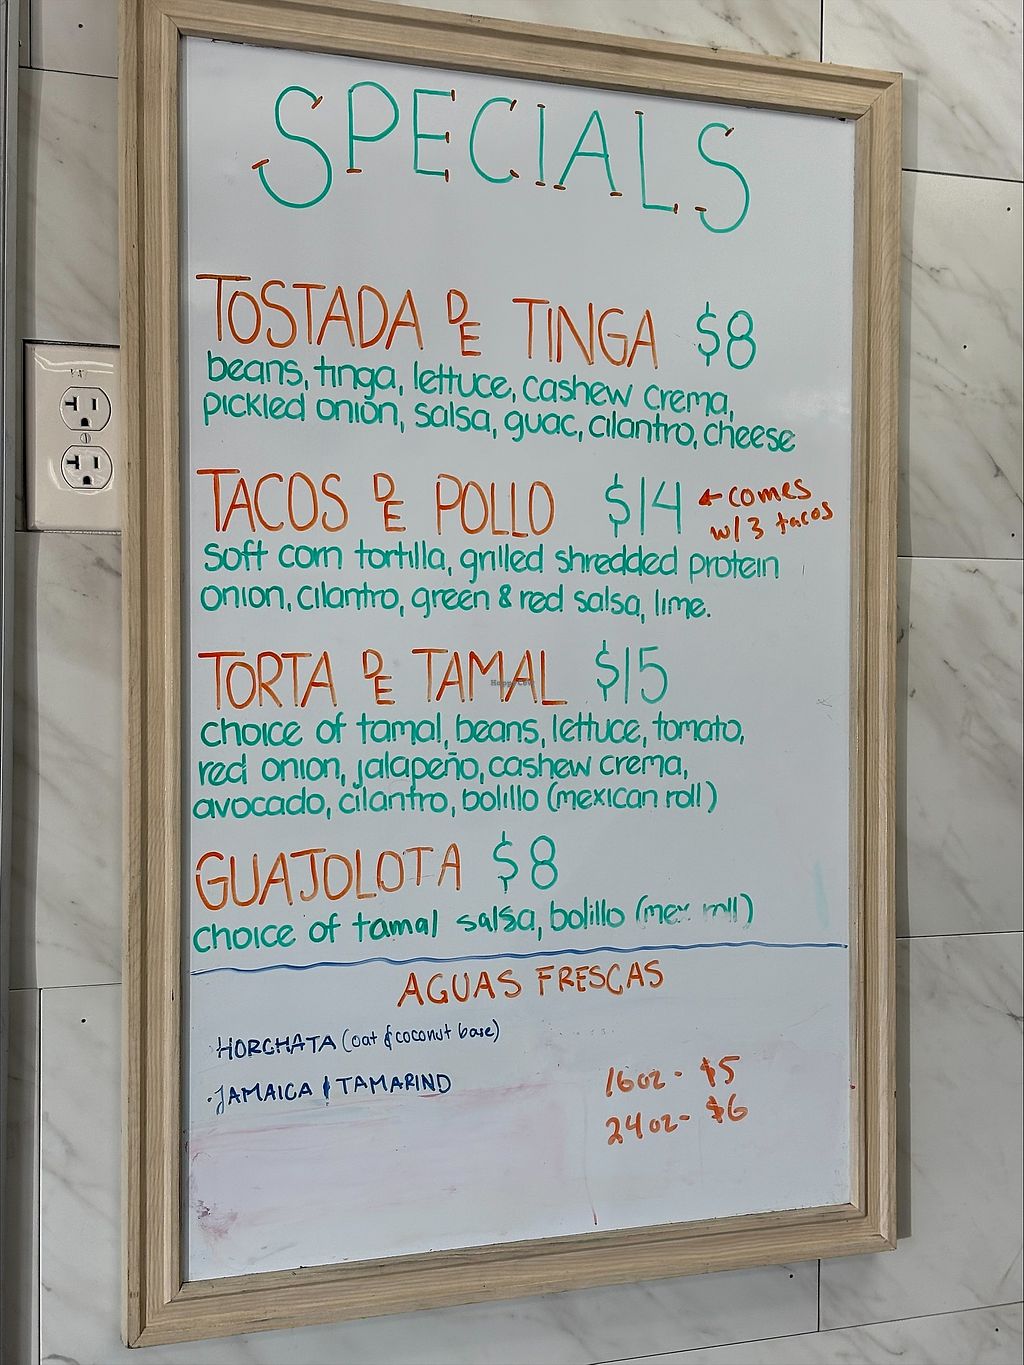 SPECIALS
TOSTADA DE TINGA $8
beans, tinga, lettuce, cashew crema,
pickled onion, salsa, guac, cilantro, cheese
TACOS DE POLLO $14 ← comes
w/ 3 tacos
soft corn tortilla, grilled shredded protein
onion, cilantro, green & red salsa, lime.
TORTA DE TAMAL $15
choice of tamal, beans, lettuce, tomato,
red onion, jalapeño, cashew crema,
avocado, cilantro, bolillo (mexican roll)
GUAJOLOTA $8
choice of tamal salsa, bolillo (mex roll)
AGUAS FRESCAS
·HORCHATA (oat & coconut base)
·JAMAICA & TAMARIND
16oz - $5
24oz - $6
HappyCow